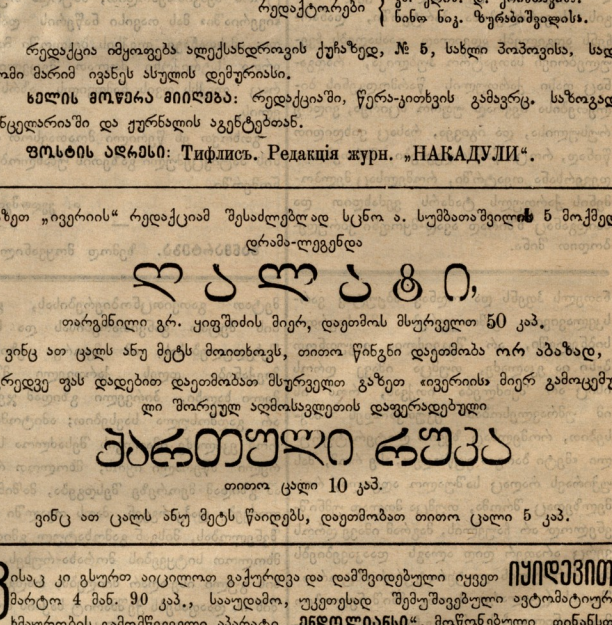 რედაქტორები
ნინო ნიკ. ზურაბიშვილისა.
რედაქცია იმყოფება ალექსანდროვის ქუჩაზედ, № 5, სახლი პოპოვისა, სად
ომი მარიმ ივანეს ასულის დემურიასი.
ხელის მოწერა მიიღება: რედაქციაში, წერა-კითხვის გამავრც. საზოგად
ნცელარიაში და ჟურნალის აგენტებთან.
ფოსტის ადრესი: Тифлисъ. Редакція журн. „НАКАДУЛИ“.
ზეთ „ივერიის“ რედაქციამ შესაძლებლად სცნო ა. სუმბათაშვილის 5 მოქმედ
დრამა-ლეგენდა
ღალატი,
თარგმნილი გრ. ყიფშიძის მიერ, დაეთმოს მსურველთ 50 კაპ.
ვინც ათ ცალს ანუ მეტს მოითხოვს, თითო წინგნი დაეთმობა ორ აბაზად,
რედვე ფას დადებით დაეთმობათ მსურველთ გაზეთ «ივერიის» მიერ გამოცემუ
ლი შორეულ აღმოსავლეთის დაფერადებული
ქართული რუკა
თითო ცალი 10 კაპ.
ვინც ათ ცალს ანუ მეტს წაიღებს, დაეთმობათ თითო ცალი 5 კაპ.
ვისაც კი გსურთ აიცილოთ გაქურდვა და დამშვიდებული იყვეთ იყიდევით
მარტო 4 მან. 90 კაპ., სააუდამო, უკეთესად შემუშავებული ავტომატიურ